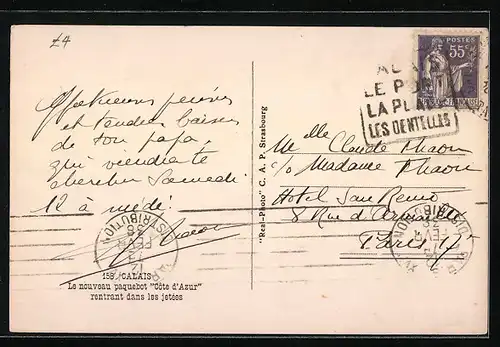 £4
Affectueuses pensées
et tendres baisers
de ton papa,
qui viendra te
chercher Samedi
12 à midi.
158. CALAIS
Le nouveau paquebot "Côte d'Azur"
rentrant dans les jetées
"Real-Photo" C. A. P. Strasbourg
POSTES
55c
LE PO
LA PL
LES DENTELLES
Melle Claude Mhaon
c/o Madame Mhaon
Hotel San Remo
8 Rue d'Armaillé
Paris 17e
DISTRIBUTION
FEVR
38